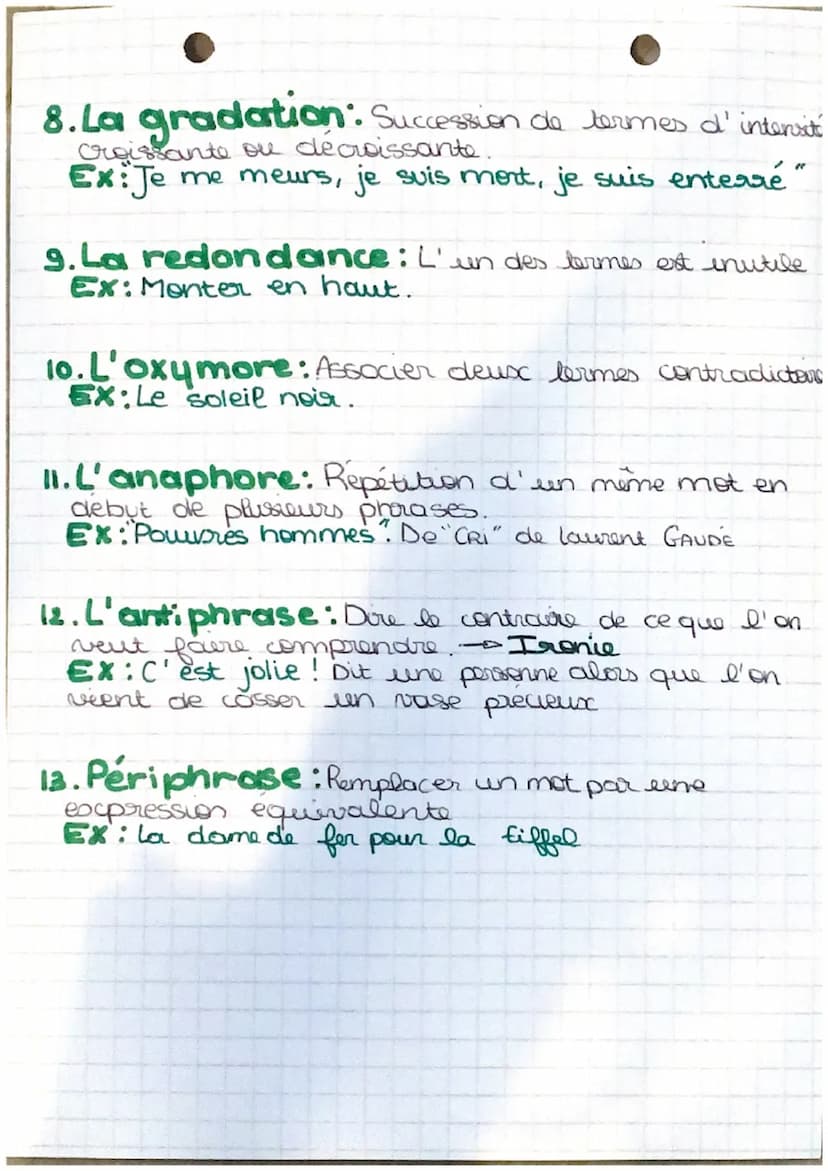 8. La gradation: Succession de termes d'intensité
croissante ou décroissante.
Ex: "Je me meurs, je suis mort, je suis enterré"
9. La redondance: L'un des termes est inutile
Ex: Monter en haut.
10. L'oxymore: Associer deux termes contradictoires
EX: Le soleil noir.
11. L'anaphore: Répétition d'un même mot en
début de plusieurs phrases.
EX: "Pauvres hommes". De "CRi" de Laurent GAUDÉ
12. L'antiphrase: Dire le contraire de ce que l'on
veut faire comprendre. → Ironie
EX: C'est jolie! Dit une personne alors que l'on
vient de casser un vase précieux
13. Périphrase: Remplacer un mot par une
expression équivalente
EX: La dame de fer pour la tiffel